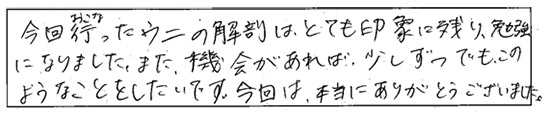 今回行(おこな)ったウニの解剖は、とても印象に残り、勉強
になりました。また、機会があれば、少しずつでも、この
ようなことをしたいです。今回は、本当にありがとうございました。